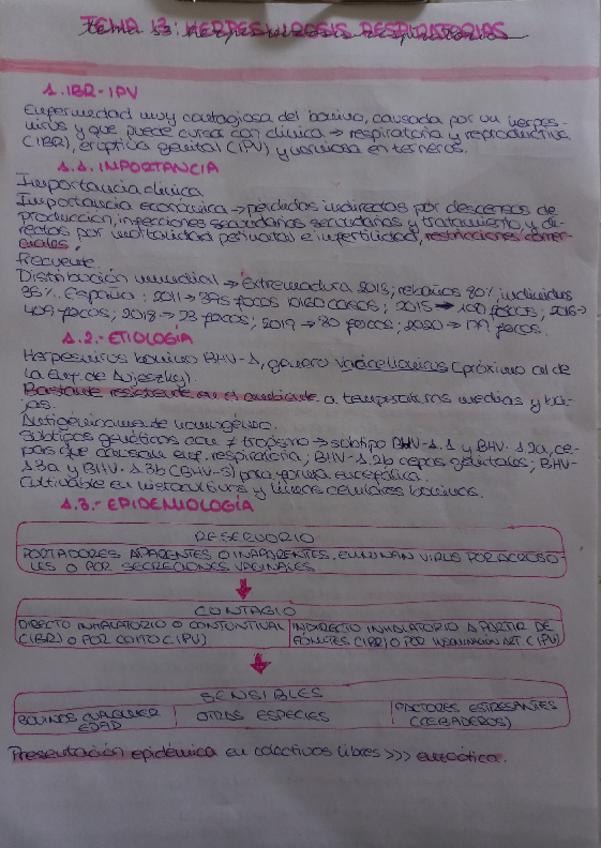 TEMA 13: HERPESVIROSIS RESPIRATORIAS
1. IBR-IPV
Enfermedad muy contagiosa del bovino, causada por un herpes-
virus y que puede cursar con clínica → respiratoria y reproductiva
(IBR), eruptiva genital (IPV) y nerviosa en terneros.
1.1. IMPORTANCIA
Importancia clínica
Importancia económica → pérdidas indirectas por descensos de
producción, infecciones secundarias secundarias y tratamiento y di-
rectas por mortalidad perinatal e infertilidad, restricciones comer-
ciales.
Frecuente.
Distribución mundial → Extremadura 2015; rebaños 80%, individuos
35%. España: 2011 → 395 focos 10160 casos; 2015 → 100 focos; 2016 →
409 focos; 2018 → 23 focos; 2019 → 30 focos; 2020 → 179 focos.
1.2.- ETIOLOGÍA
Herpesvirus bovino BHV-1, género Varicellovirus (próximo al de
la enf. de Aujeszky).
Bastante resistente en el ambiente a temperaturas medias y ba-
jas.
Antigénicamente homogéneo.
Subtipos genéticos con ≠ tropismo → subtipo BHV-1.1 y BHV-1.2a, ce-
pas que causan enf. respiratoria; BHV-1.2b cepas genitales; BHV-
1.3a y BHV-1.3b (BHV-5) para forma encefálica.
Cultivable en histocultivos y líneas celulares bovinas.
1.3.- EPIDEMIOLOGÍA
RESERVORIO
PORTADORES APARENTES O INAPARENTES. ELIMINAN VIRUS POR AEROSO-
LES O POR SECRECIONES VAGINALES
CONTAGIO
DIRECTO INHALATORIO O CONJUNTIVAL
(IBR) O POR COITO (IPV)
INDIRECTO INHALATORIO A PARTIR DE
FÓMITES (IBR) O POR INSEMINACIÓN ART. (IPV)
SENSIBLES
BOVINOS CUALQUIER
EDAD
OTRAS ESPECIES
FACTORES ESTRESANTES
(CEBADEROS)
Presentación epidémica en colectivos libres >>> enzoótica.